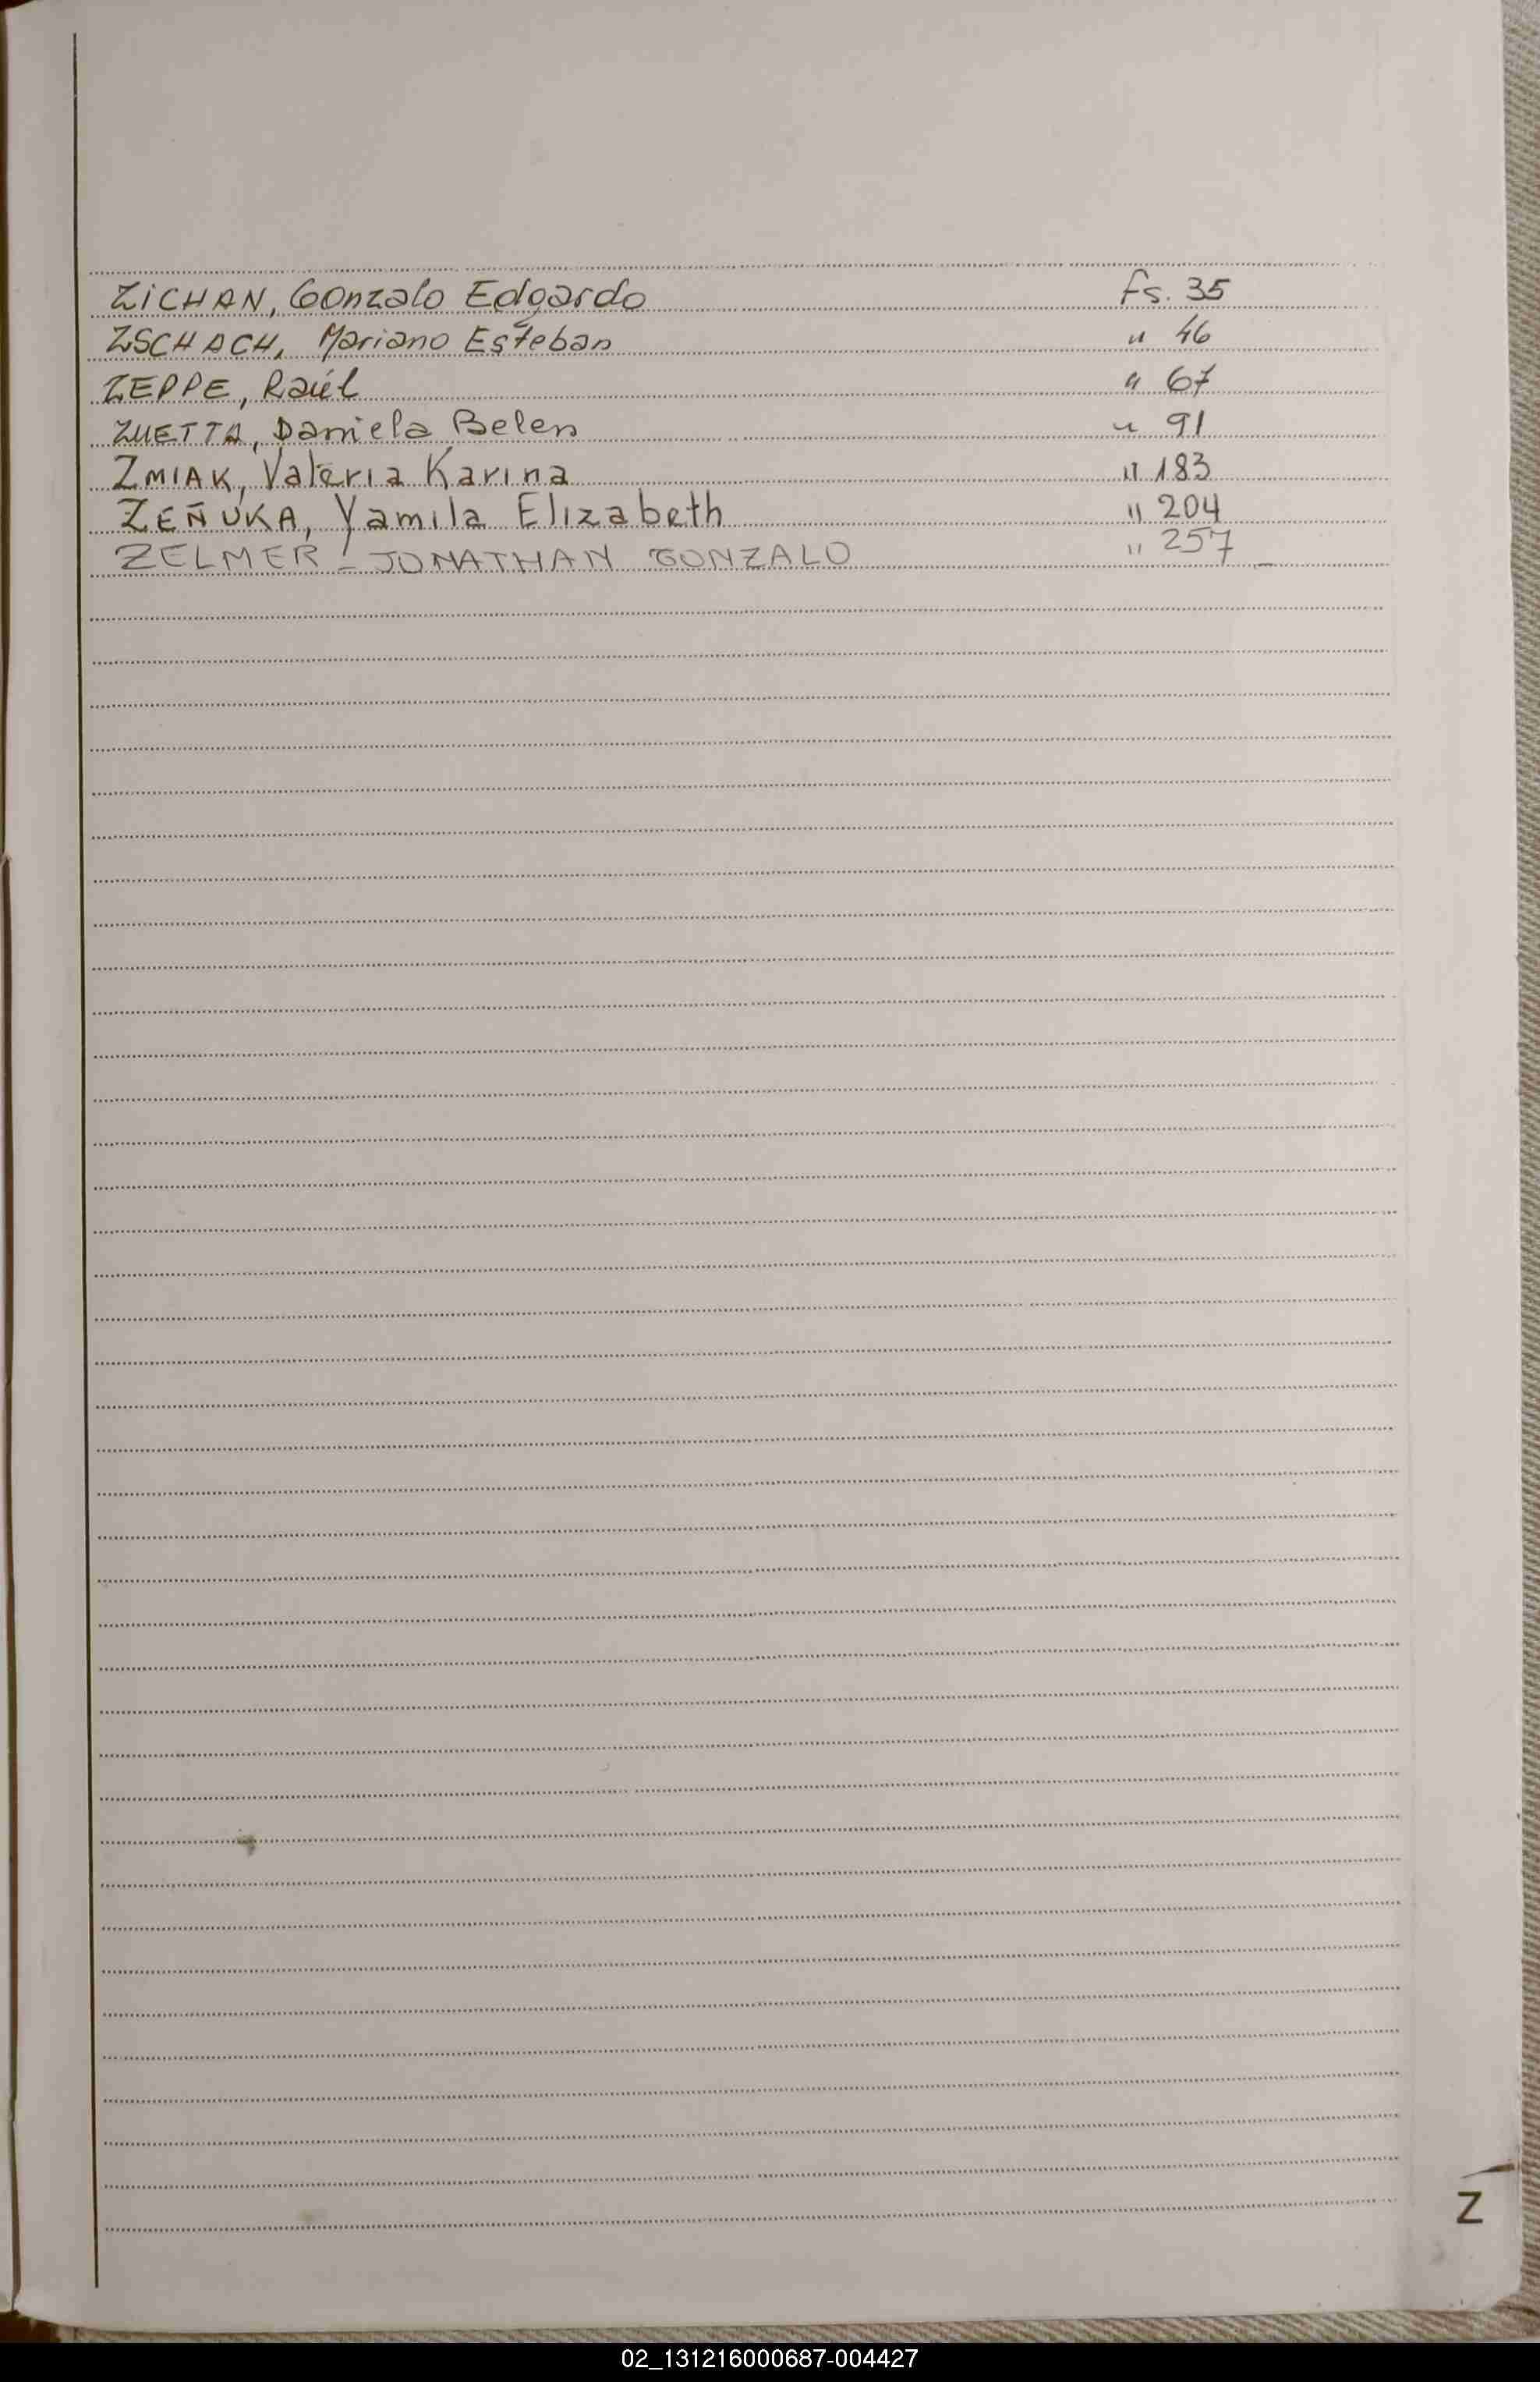 ZICHAN, Gonzalo Edgardo fs. 35
ZSCHACH, Mariano Esteban " 46
ZEPPE, Raúl " 67
ZUETTA, Daniela Belen " 91
ZMIAK, Valeria Karina " 183
ZEÑUKA, Yamila Elizabeth " 204
ZELMER - JONATHAN GONZALO " 257 _
Z
02_131216000687-004427